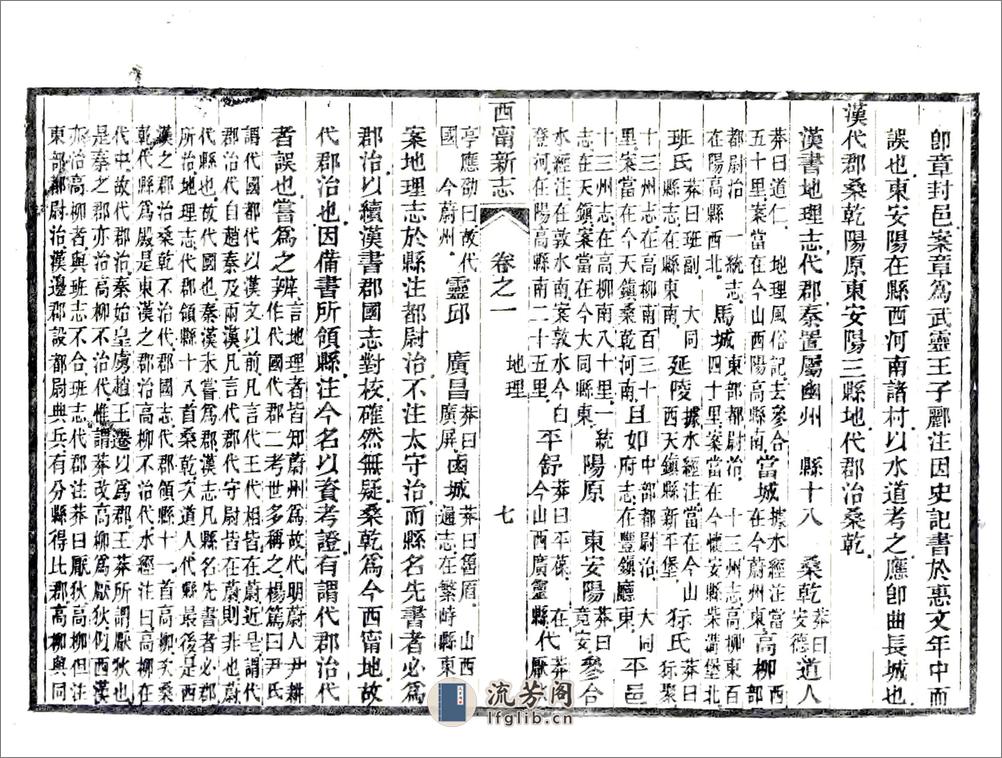 卽章封邑案章爲武靈王子酈注因史記書於惠文年中而
誤也東安陽在縣西河南諸村以水道考之應卽曲長城也
漢代郡桑乾陽原東安陽三縣地代郡治桑乾
漢書地理志代郡秦置屬幽州 縣十八 桑乾莽曰安德道人
莽曰道仁 地理風俗記去參合五十里案當在今山西陽高縣南當城據水經注當在今蔚州東高柳西部
都尉治 一統志在陽高縣西北馬城東部都尉治 十三州志高柳東百四十里案當在今懷安縣柴溝堡北
班氏莽曰班副 大同縣志在縣東南延陵據水經注當在今山西天鎮縣新平堡狋氏莽曰狋聚
十三州志在高柳南百三十里案當在今天鎮桑乾河南且如中部都尉治 大同府志在豐鎮廳東平邑
十三州志在高柳南八十里一統志在天鎮案當在今大同縣東陽原 東安陽莽曰竟安參合
水經注在敦水南案敦水今白登河在陽高縣南二十五里平舒莽曰平葆 在今山西廣靈縣代莽曰厭
西甯新志 卷之一 地理 七
亭應劭曰故代國 今蔚州靈邱 廣昌莽曰廣屏鹵城莽曰魯盾 山西通志在繁峙縣東
案地理志於縣注都尉治不注太守治而縣名先書者必爲
郡治以續漢書郡國志對校確然無疑桑乾爲今西甯地故
代郡治也因備書所領縣注今名以資考證有謂代郡治代
者誤也嘗爲之辨言地理者皆知蔚州爲故代明蔚人尹耕作代國代郡二考世多稱之楊篤曰尹氏
謂代國代郡以漢文以前凡言代王代相皆在蔚近是謂代郡代自趙秦及兩漢凡言代郡代守尉皆在蔚則非也蔚
代縣也故代國也秦漢未嘗爲郡漢志凡縣名先書者必郡所治地理志代郡領縣十八首桑乾次道人代縣最後是西
漢之郡治桑乾不治代郡國志代郡領縣十一首高柳次桑乾代縣爲殿是東漢之郡治高柳不治代水經注曰高柳在
代中故代郡治秦始皇虜趙王遷以爲郡王莽所謂厭狄也是秦之郡亦治高柳不治代惟謂莽改高柳爲厭狄似西漢
亦治高柳者與班志不合班志代郡注莽曰厭狄高柳但謂東部都尉治漢邊郡設都尉典兵有分縣得比郡高柳與同